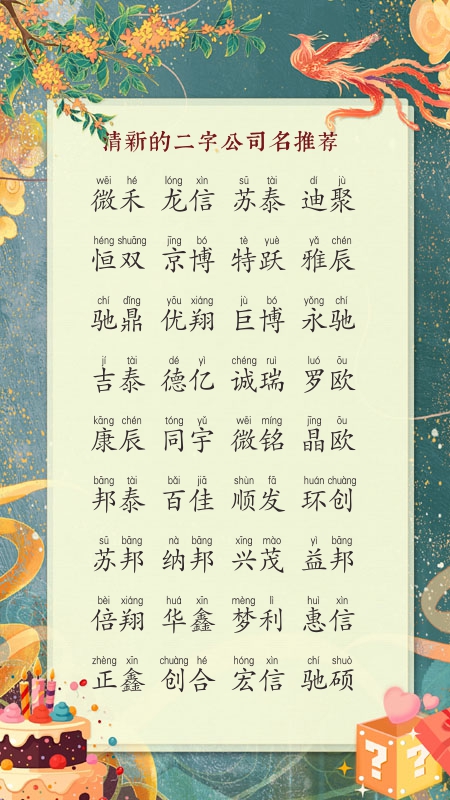 清新的二字公司名推荐
wēi hé lóng xìn sū tài dí jù
微禾 龙信 苏泰 迪聚
héng shuāng jīng bó tè yuè yǎ chén
恒双 京博 特跃 雅辰
chí dǐng yōu xiáng jù bó yǒng chí
驰鼎 优翔 巨博 永驰
jí tài dé yì chéng ruì luó ōu
吉泰 德亿 诚瑞 罗欧
kāng chén tóng yǔ wēi míng jīng ōu
康辰 同宇 微铭 晶欧
bāng tài bǎi jiā shùn fā huán chuàng
邦泰 百佳 顺发 环创
sū bāng nà bāng xīng mào yì bāng
苏邦 纳邦 兴茂 益邦
bèi xiáng huá xīn mèng lì huì xìn
倍翔 华鑫 梦利 惠信
zhèng xīn chuàng hé hóng xìn chí shuò
正鑫 创合 宏信 驰硕
? ?